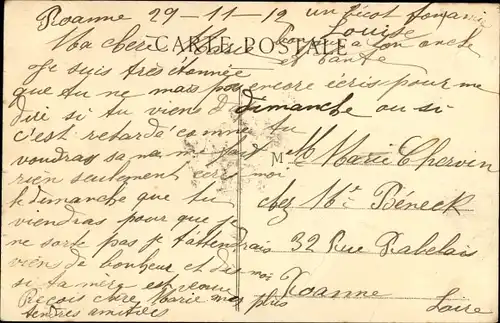 Roanne 29-11-12
un bécot
Louise
à son oncle
et tante
CARTE POSTALE
Ma chère
Je suis très étonnée
que tu ne mais pas encore écris pour me
dire si tu viens dimanche ou si
c'est retardé comme tu
voudras sa ne m fait
rien seulement écris moi
le dimanche que tu
viendras pour que je
ne sorte pas je t'attendrais
viens de bonheur et dis moi
si ta mère est venue
Reçois chère Marie mes plus
tendres amitiés
M Marie Chervin
chez Mr Béneck
32 Rue Rabelais
Roanne
Loire